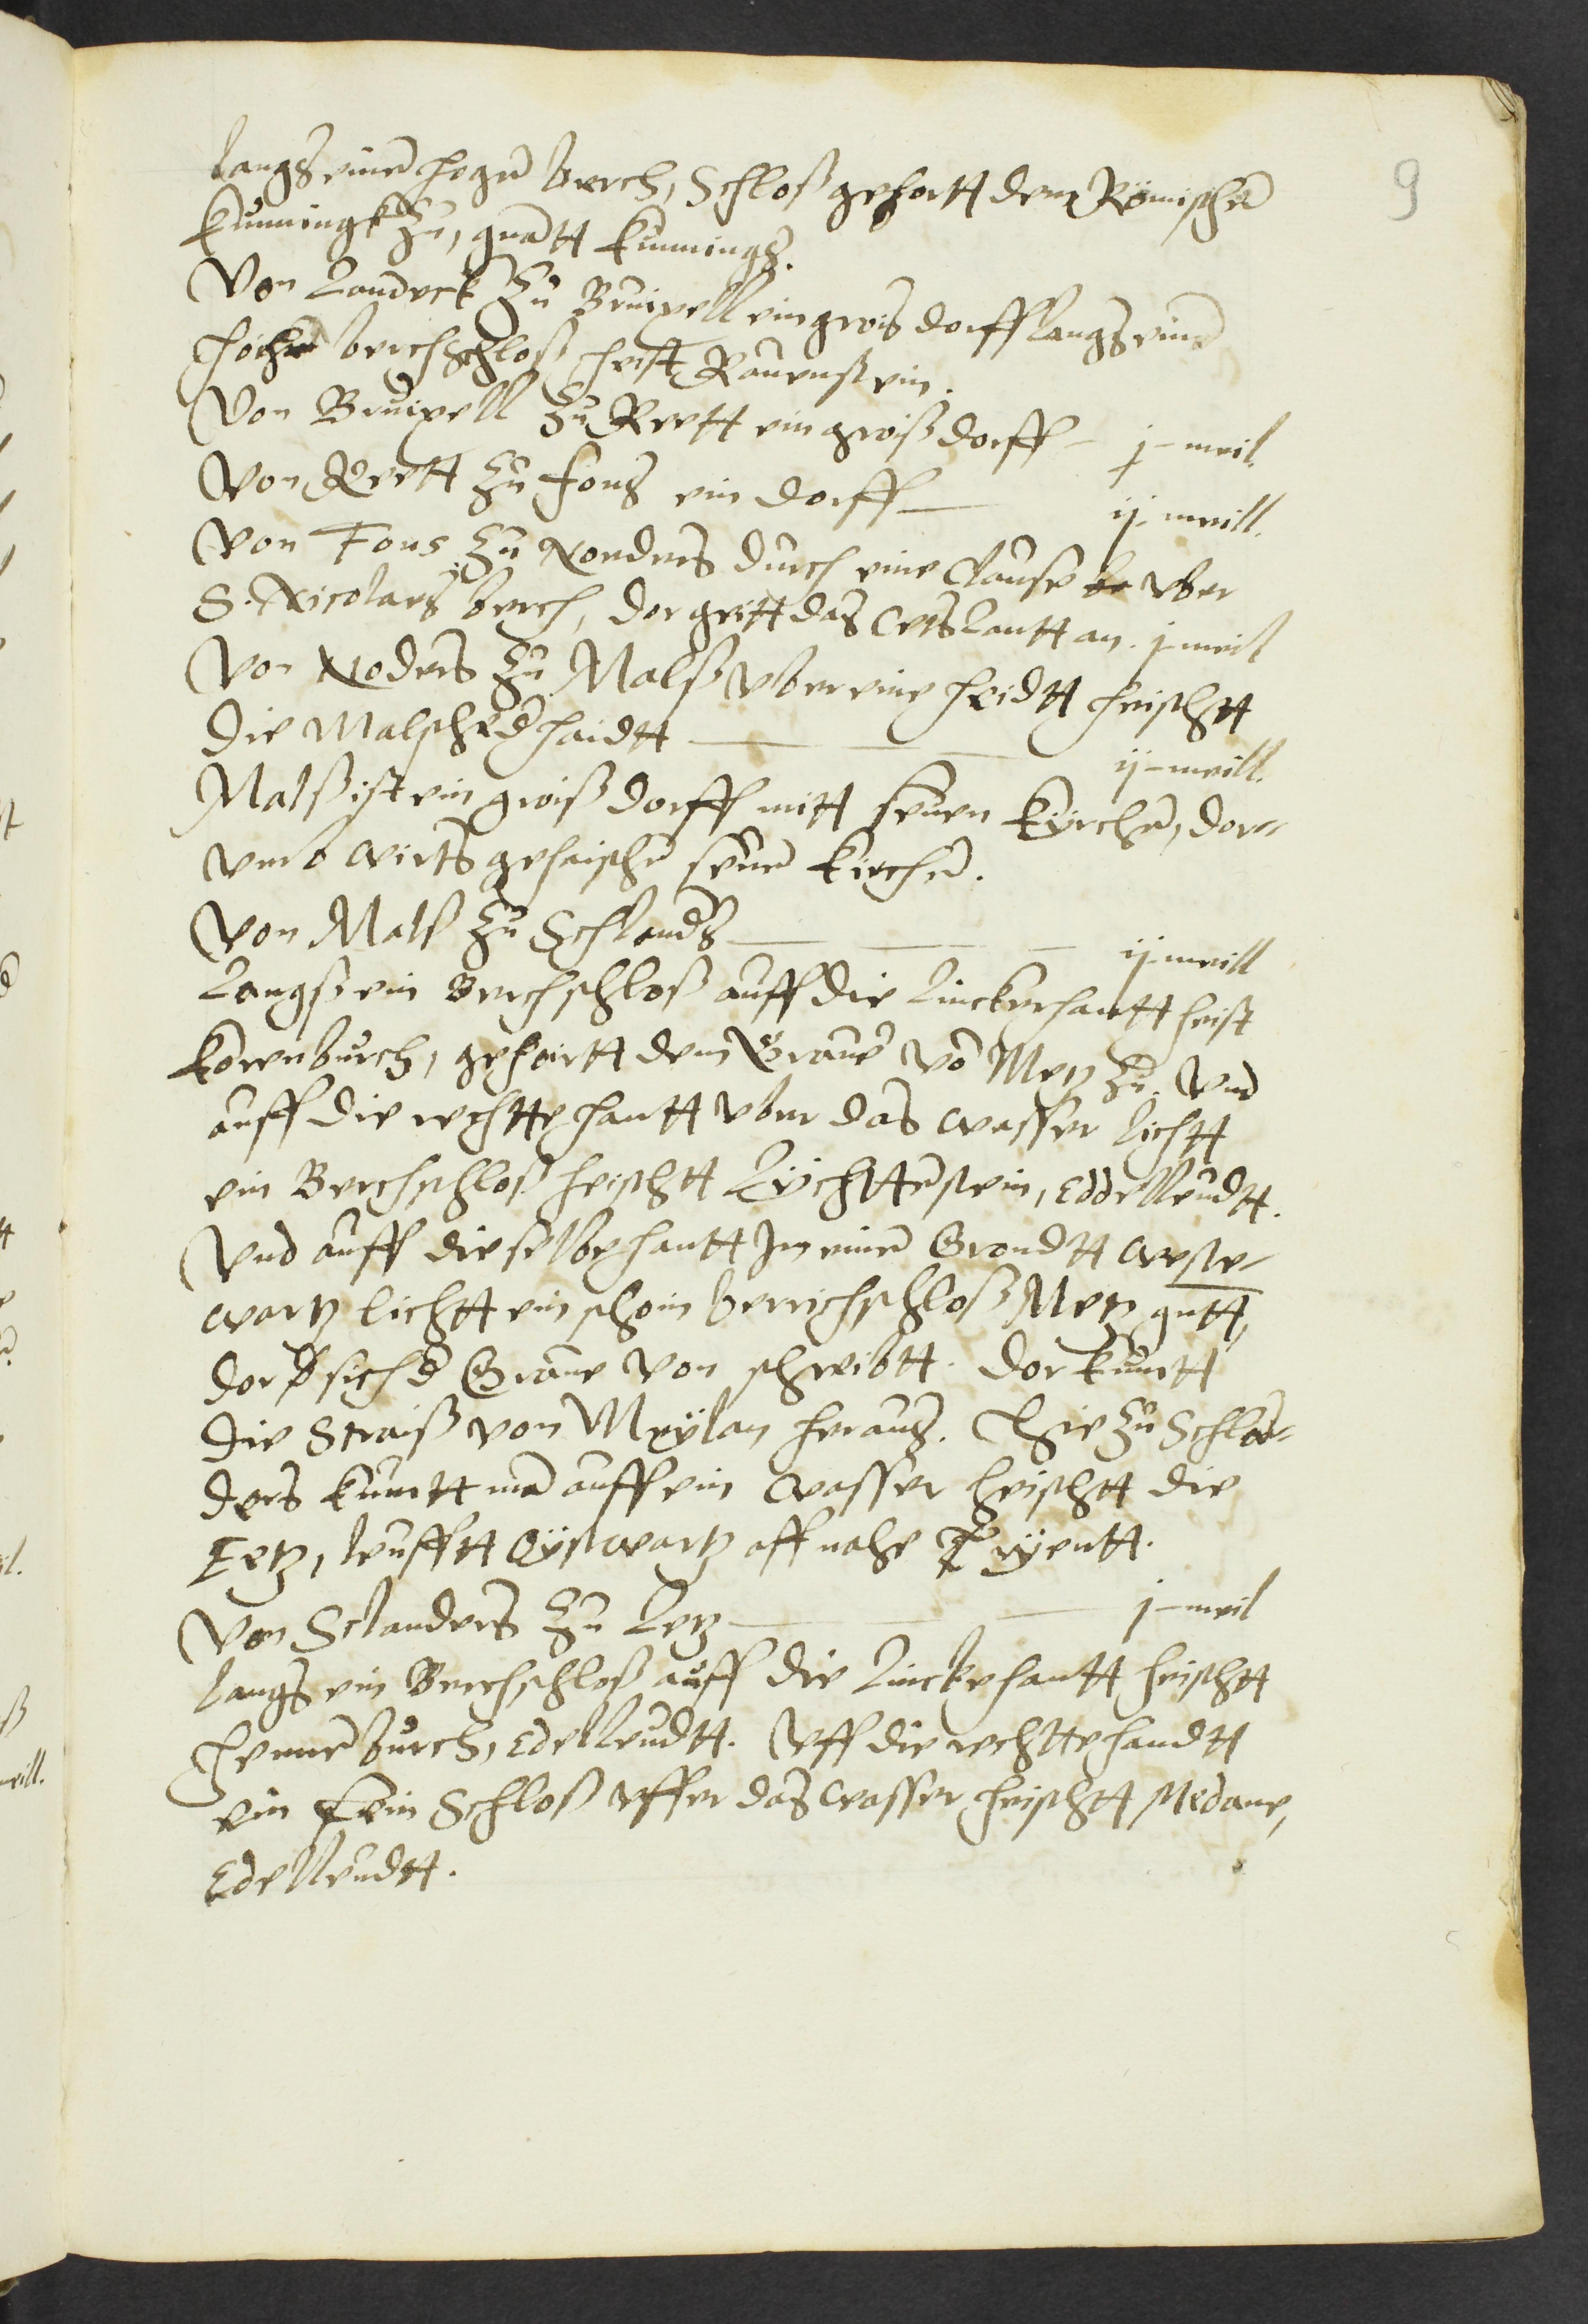 9
langs einē hogē berch, Schloß gehortt dem Römischē
Kunningk zu, gnātt Kunnings.
Von Landeck zu Bruxell ein grois dorff langs einē
hochē berchschloß heist Rauenstein.
Von Bruxell zu Reett ein groiß dorff — j– meil.
Von Reett zu Fons ein dorff — ij– meill.
Von Fons zu Nonders durch eine Clause be vber
S. Nicolaes berch, dor geitt das Etslantt an. j– meil
Von Noders zu Malß vber eine heidtt heischtt
die Malschēd haidtt — — — ij– meill.
Malß ist ein groiß dorff mitt seuen Kyrchē, dor=
vmb wirts gehaischē seuē Kirchē.
Von Malß zu Schlands — — — ij– meill
Langß ein Berchschloß auff die linckerhantt heist
Korenburch, gehoirtt dem Grauē vō Metz zu. Vnd
auff die rechtte hantt vber das wasser lichtt
ein Berchschloß heischtt Lychttēstein, Eddelleudtt.
Vnd auff die selbe hantt Jm einē Grondtt weste=
wartz lichtt ein schoin berrichschloß Metz gntt,
dor sich d Graue von schreibtt. dor kumtt
die Straiß von Meylan heraus. Hie zu Schlan=
ders kumtt mā auff ein wasser heischtt die
Eetz, leufftt Oystwartz aff nahe Tryentt.
Von Sclanders zu Letz — — j– meil
langs ein Berchschloß auff die linckehantt heischtt
Hennēburch, Edelleudtt. Vff die rechttehandtt
ein fein Schloß vffer das wasser heischtt Medane,
Edelleudtt.